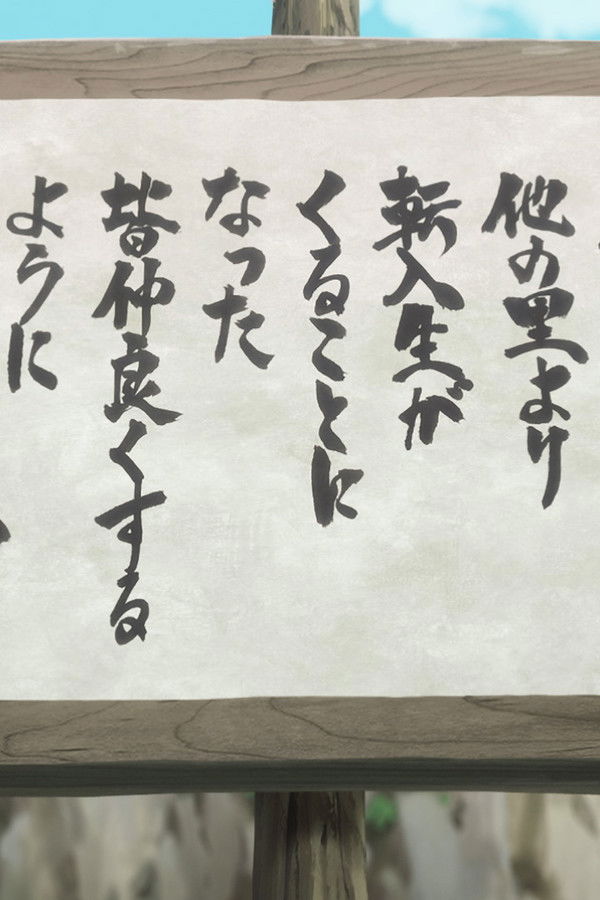 他の里より
転入生が
くることに
なった
皆仲良くする
ように